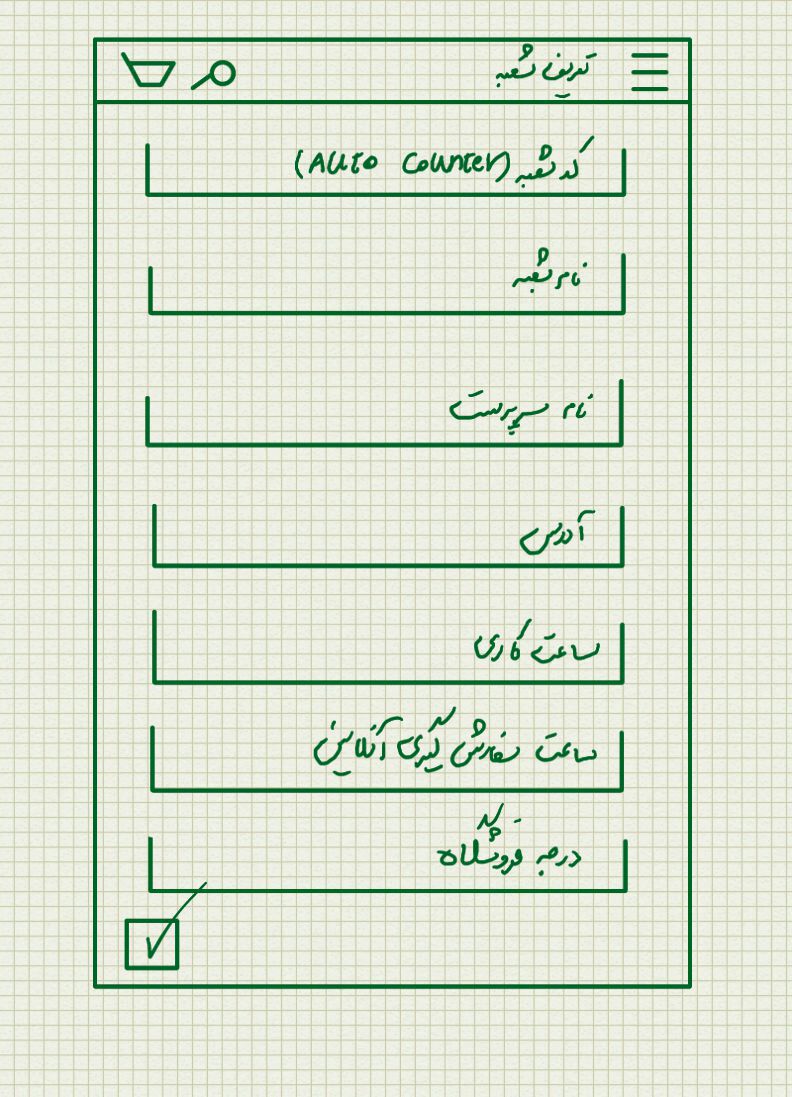 تعریف شعبه
کد شعبه (Auto Counter)
نام شعبه
نام سرپرست
آدرس
ساعت کاری
ساعت سفارش گیری آنلاین
درجه فروشگاه